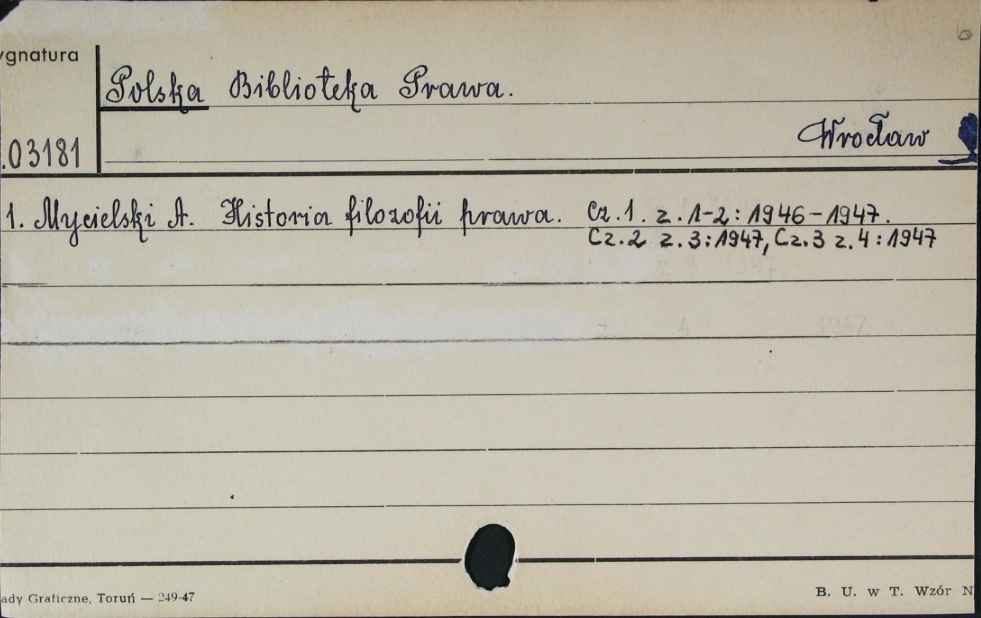 ygnatura
Polska Biblioteka Prawa.
Wrocław
.03181
1. Mycielski A. Historia filozofii prawa. Cz. 1. z. 1-2: 1946-1947.
Cz. 2 z. 3: 1947, Cz. 3 z. 4: 1947
ady Graficzne, Toruń — 249-47
B. U. w T. Wzór N